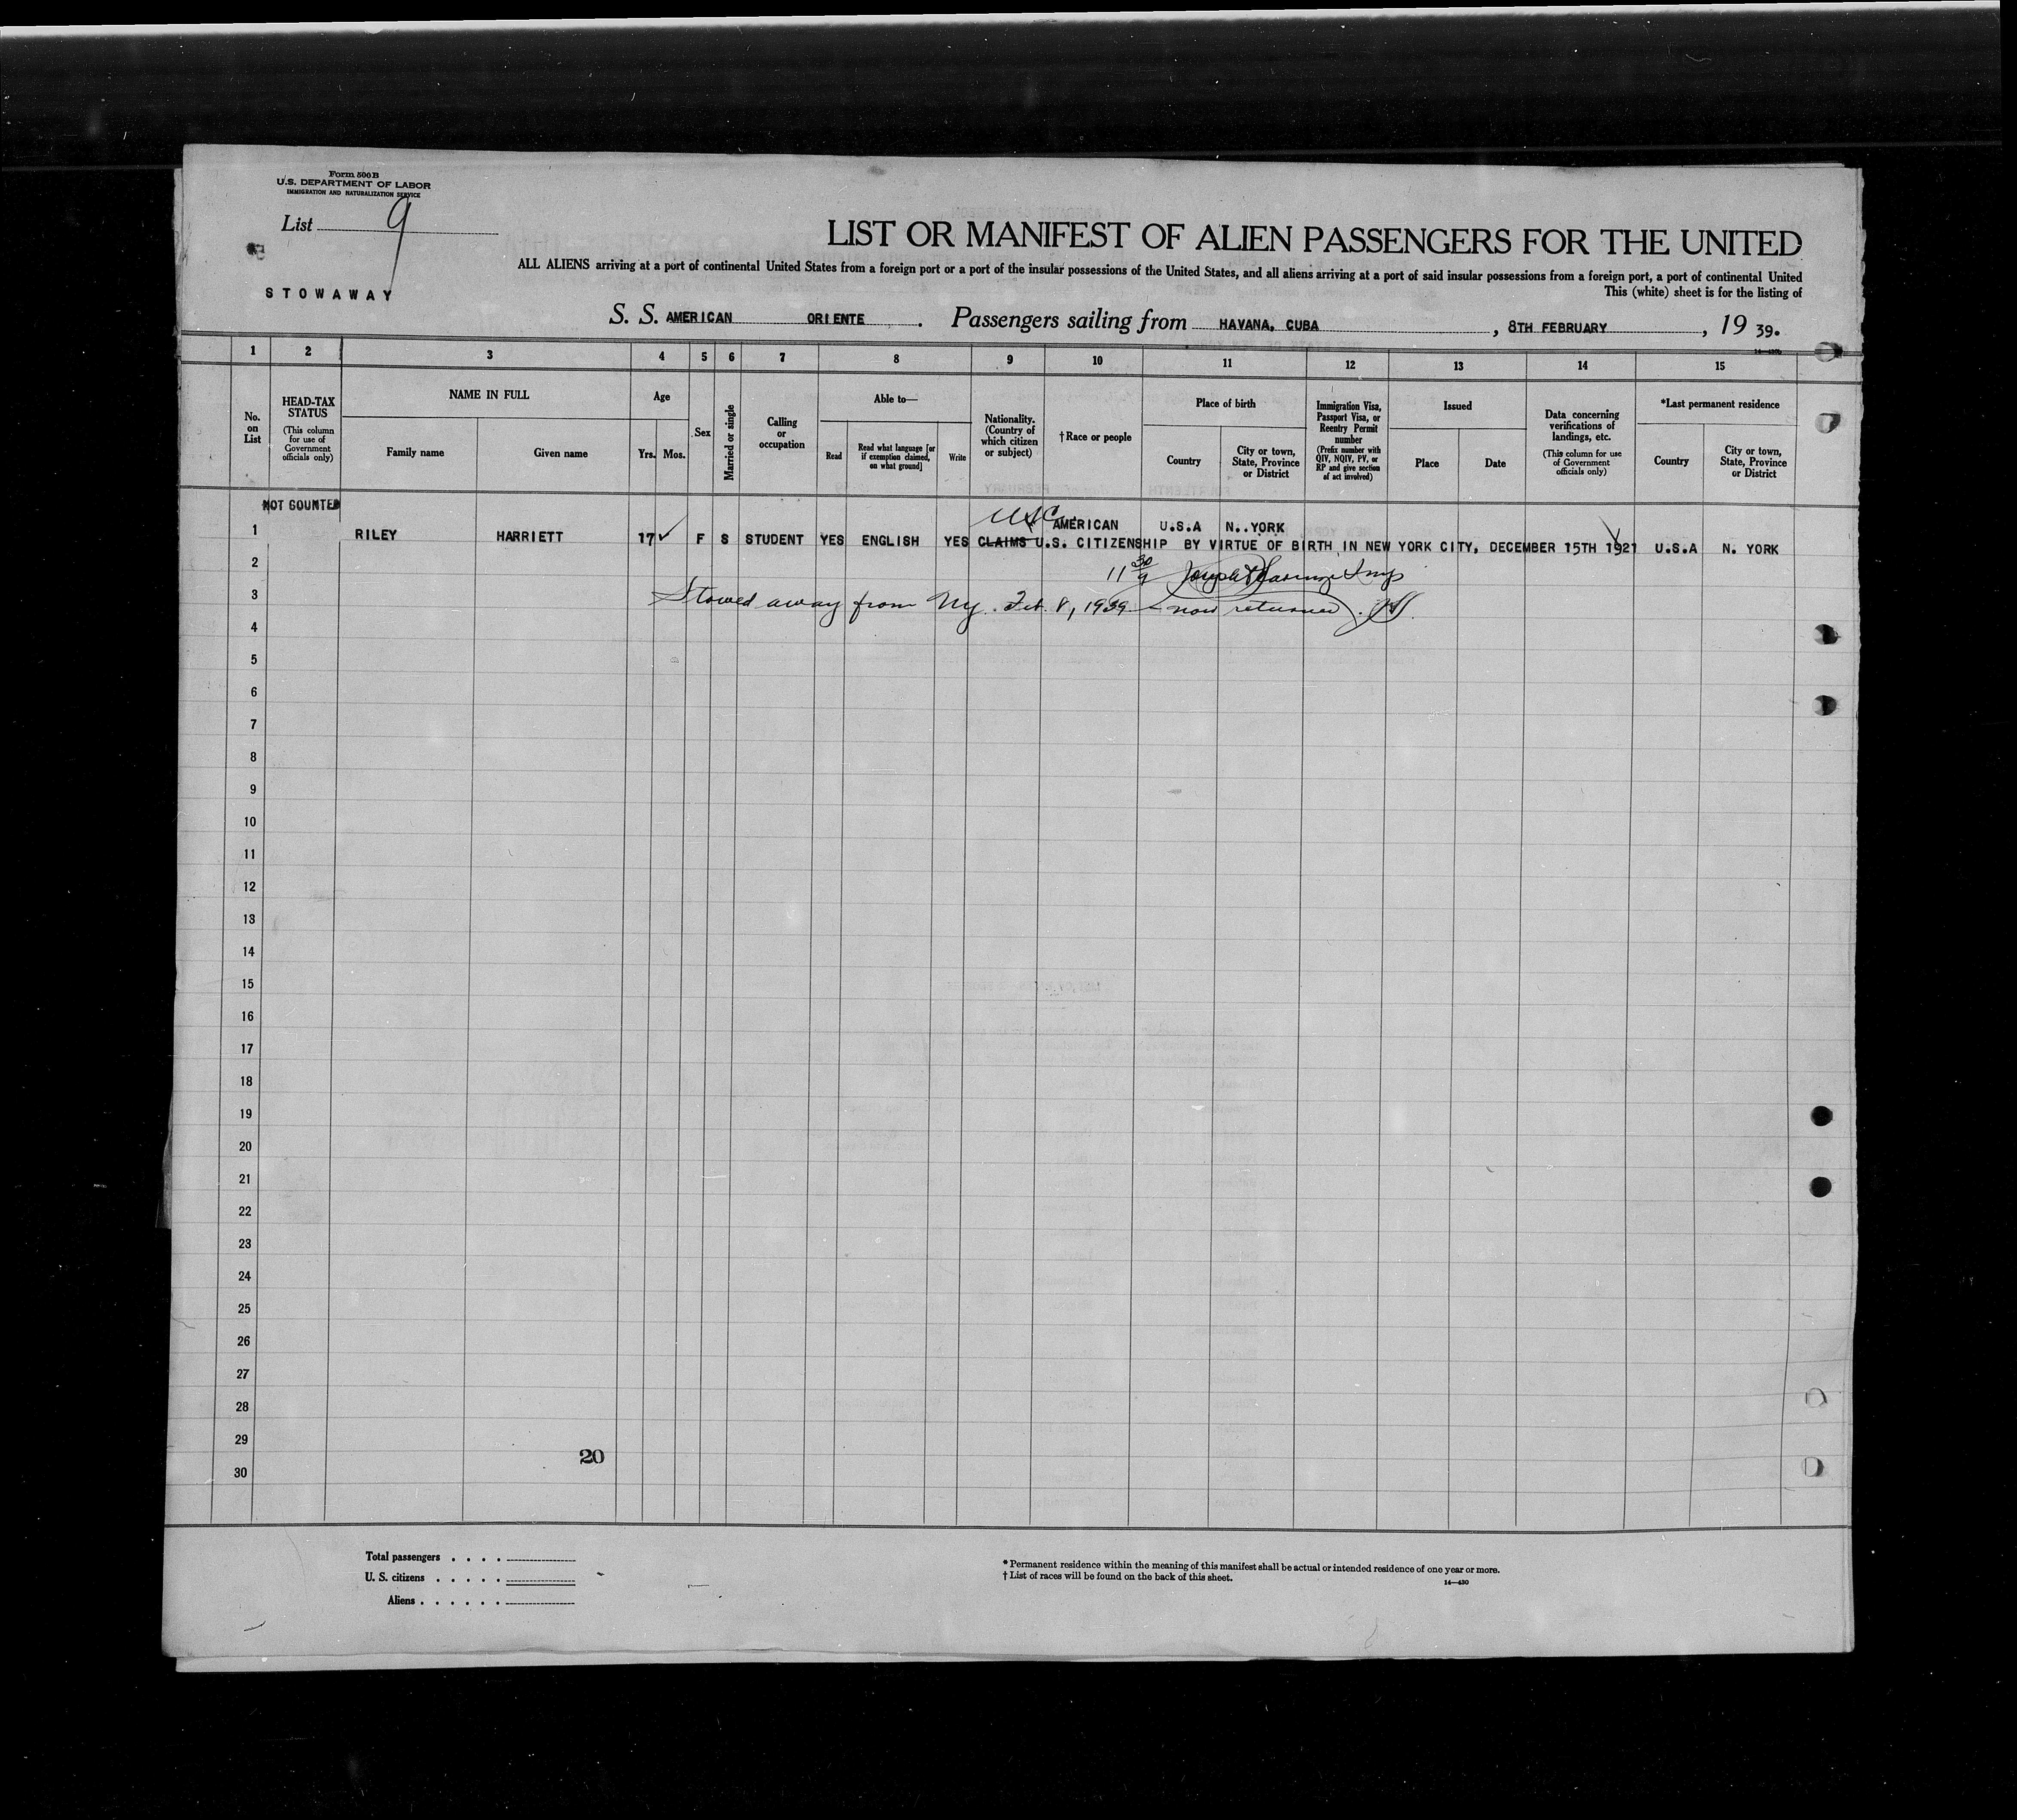 Form 500B
U.S. DEPARTMENT OF LABOR
IMMIGRATION AND NATURALIZATION SERVICE
List 9
LIST OR MANIFEST OF ALIEN PASSENGERS FOR THE UNITED
ALL ALIENS arriving at a port of continental United States from a foreign port or a port of the insular possessions of the United States, and all aliens arriving at a port of said insular possessions from a foreign port, a port of continental United
STOWAWAY
This (white) sheet is for the listing of
S. S. AMERICAN ORIENTE. Passengers sailing from HAVANA, CUBA, 8TH FEBRUARY, 19 39.
1 2 3 4 5 6 7 8 9 10 11 12 13 14 15
No. on List
HEAD-TAX STATUS (This column for use of Government officials only)
NAME IN FULL
Family name
Given name
Age
Yrs. Mos.
Sex
Married or single
Calling or occupation
Able to—
Read
Read what language [or if exemption claimed, on what ground]
Write
Nationality. (Country of which citizen or subject)
†Race or people
Place of birth
Country
City or town, State, Province or District
Immigration Visa, Passport Visa, or Reentry Permit number (Prefix number with QIV, NQIV, PV, or RP and give section of act involved)
Issued
Place
Date
Data concerning verifications of landings, etc. (This column for use of Government officials only)
*Last permanent residence
Country
City or town, State, Province or District
NOT COUNTED
USC AMERICAN U.S.A N. YORK
1 RILEY HARRIETT 17 ✓ F S STUDENT YES ENGLISH YES CLAIMS U.S. CITIZENSHIP BY VIRTUE OF BIRTH IN NEW YORK CITY, DECEMBER 15TH 1921 U.S.A N. YORK
2
3 Stowed away from Ny. Feb. 8, 1939 - now returned.
4
5
6
7
8
9
10
11
12
13
14
15
16
17
18
19
20
21
22
23
24
25
26
27
28
29
20
30
Total passengers . . . .
U. S. citizens . . . . .
Aliens . . . . . .
* Permanent residence within the meaning of this manifest shall be actual or intended residence of one year or more.
† List of races will be found on the back of this sheet.
14—430